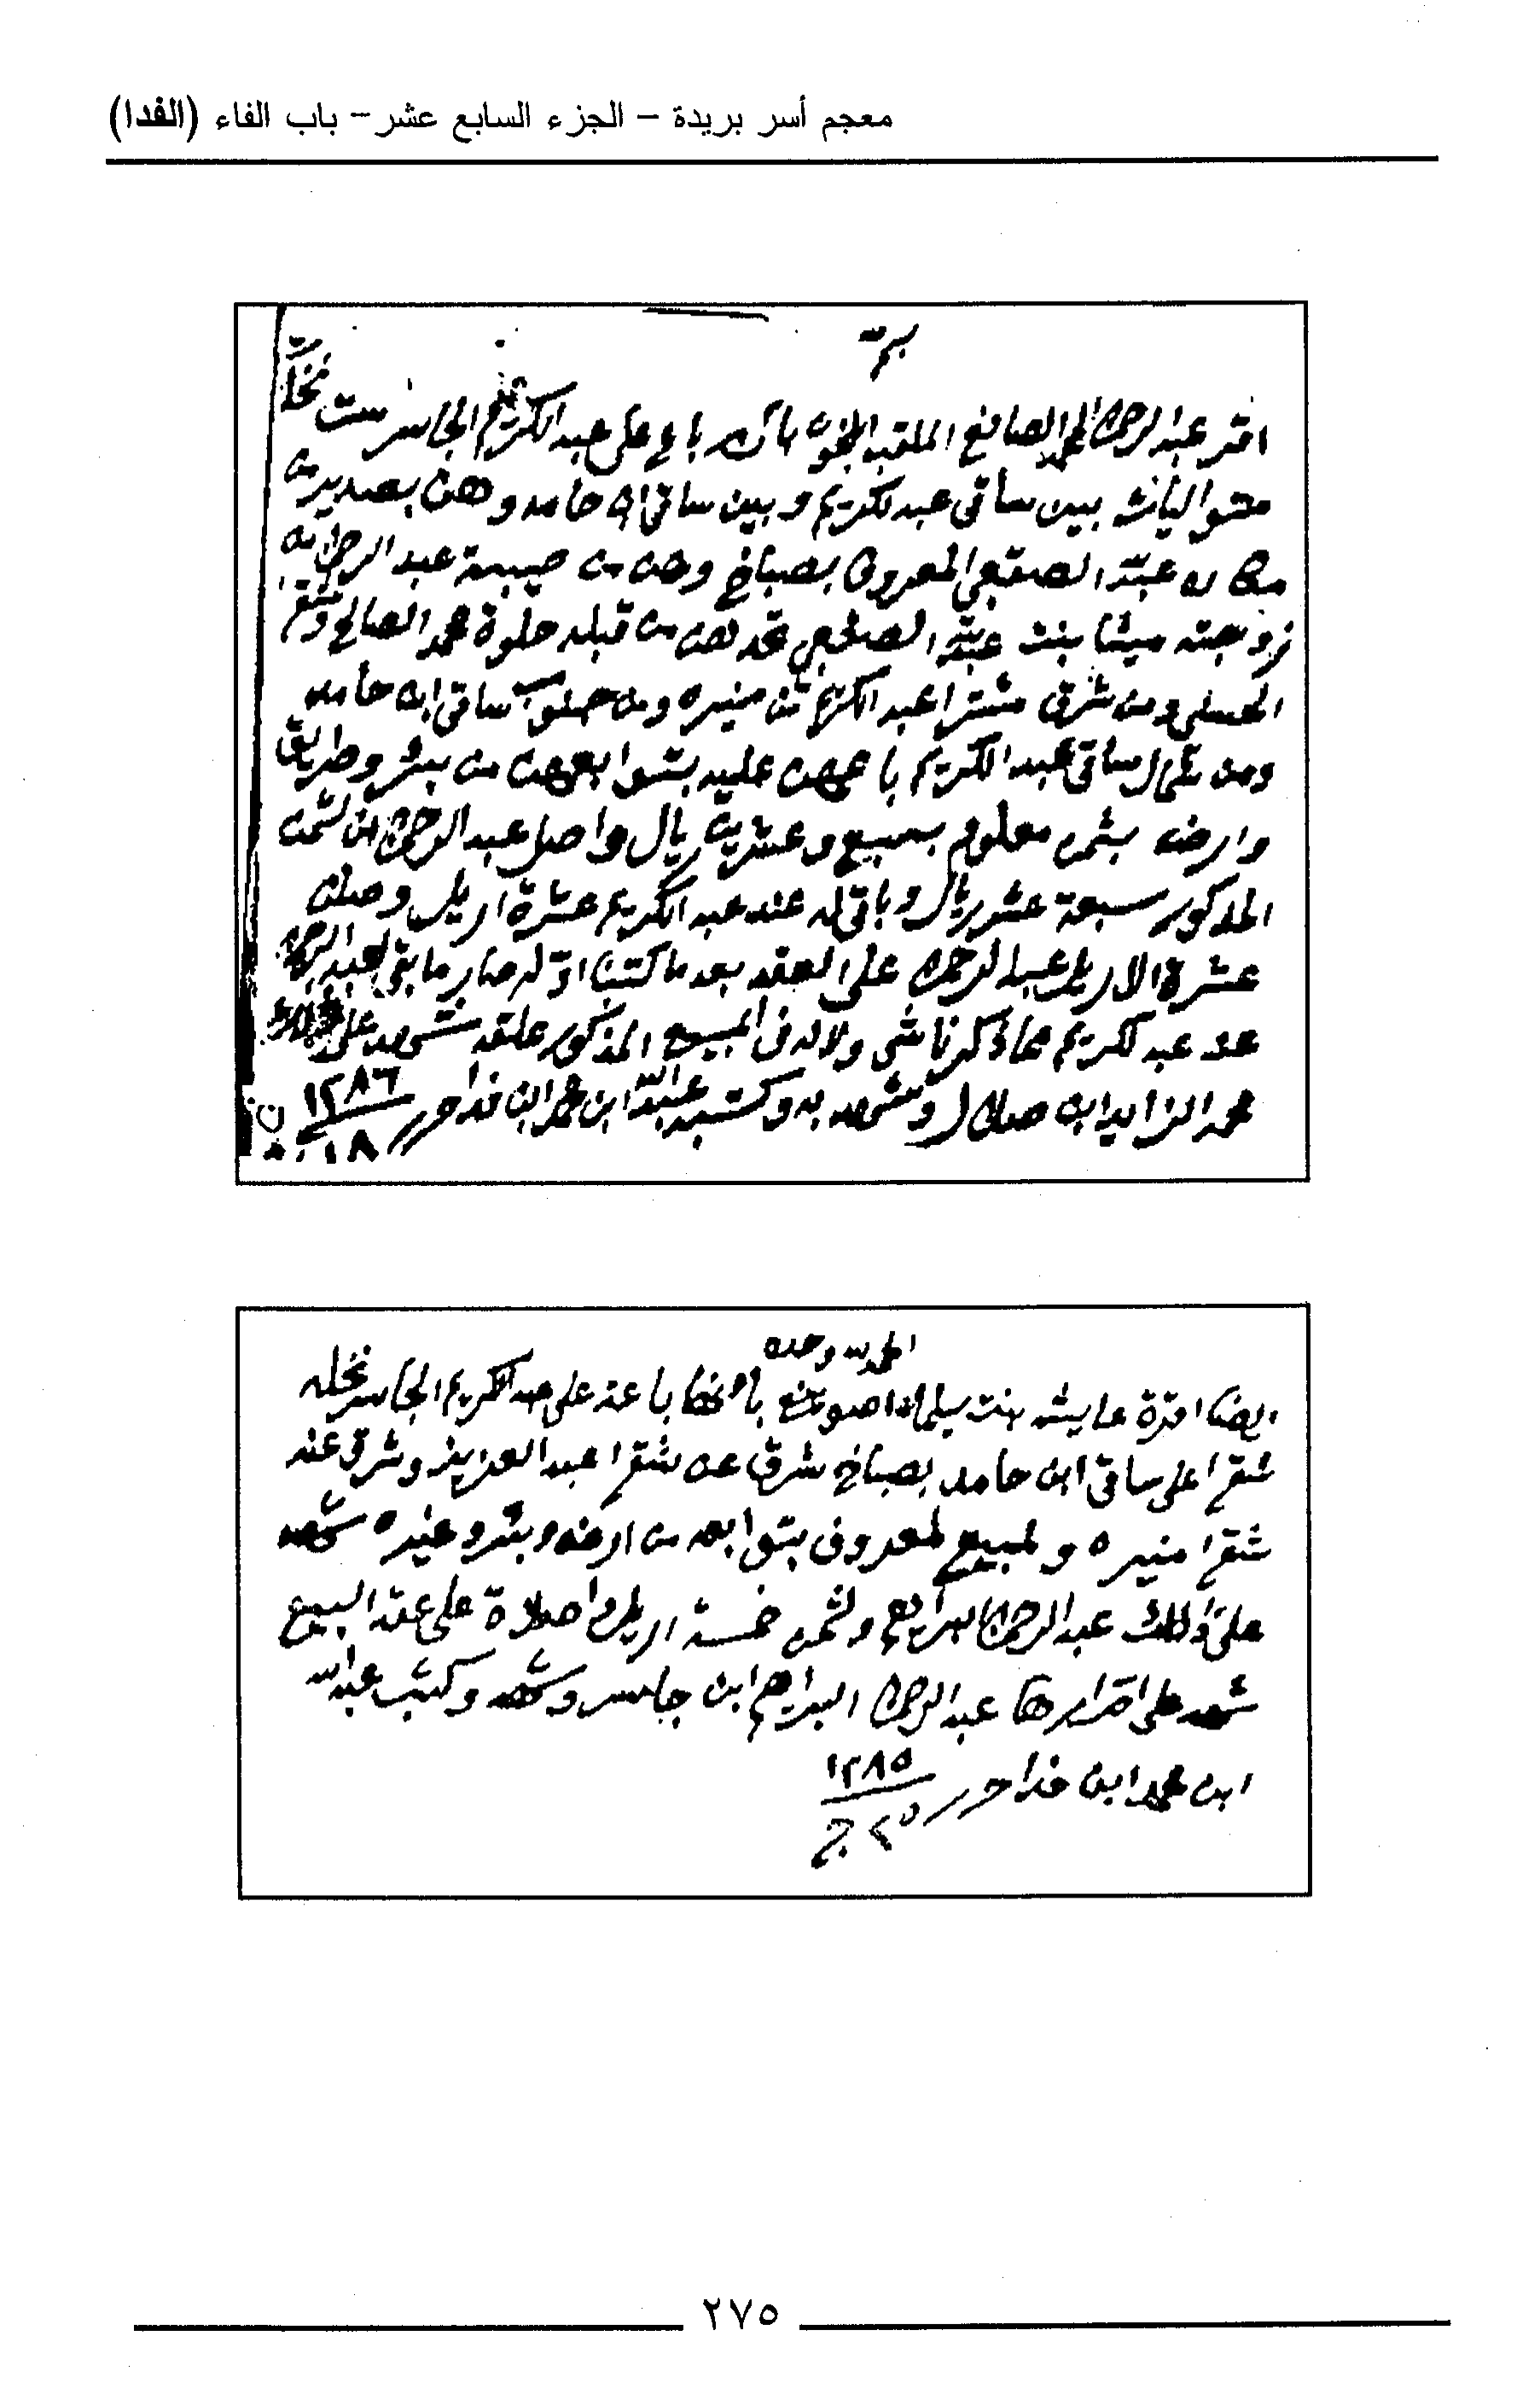 معجم أسر بريدة – الجزء السابع عشر – باب الفاء (الفدا)
اقر عبد الرحمن المحمد الصايغ الملقب بانه باع على عبد الكريم الجاسر ست نخلات
بين ساقي عبد لكريم وبين ساقي ابن حامد وهن
مكان عبد الله الصقعبي المعروف بصباخ وهن من عبد الرحمن من
زوجته ميثا بنت عبد الله الصقعبي من قبله حلوة محمد الصالح وشقرا
ومن شرق عبد الكريم من منيره ومن جنوب ساقي ابن حامد
ومن شمال ساقي عبد الكريم باعهن عليه بتوابعهن من بير وطريق
وارض بثمن معلوم سبع وعشرين ريال واصل عبد الرحمن من لثمن
المذكور سبعة عشر ريال وباقي له عند عبد الكريم عشرة اريل وصلن
عشرة الاريل عبد الرحمن على العقد بعد ما كتبنا صار ما بقي لعبد الرحمن
عند عبد لكريم مما ذكرنا شي ولا له في المبيع المذكور علقه شهد على ذلك
محمد الزايد ابن صلال وشهد به وكتبه عبد الله ابن محمد ابن فدا حرر ١٢٨٦
١٨ ن
الحمد لله وحده
ايضا اقرة عايشه بنت سليمان بانها باعت على عبد الكريم الجاسر نخله
شقرا على ساقي ابن حامد بصباخ شرق عن شقرا عبد العزيز وشرق عنه
شقرا منيره ولمبيع لمعروف بتوابعه من ارض وبير وغيره شهد
على ذلك عبد الرحمن البراهيم ولثمن خمسة اريل واصلاة على عقد البيع
شهد على اقرارها عبد الرحمن البراهيم ابن جاسر وشهد وكتب عبد الله
ابن محمد ابن فدا حرر ١٢٨٥
٢٥ ج
٢٧٥